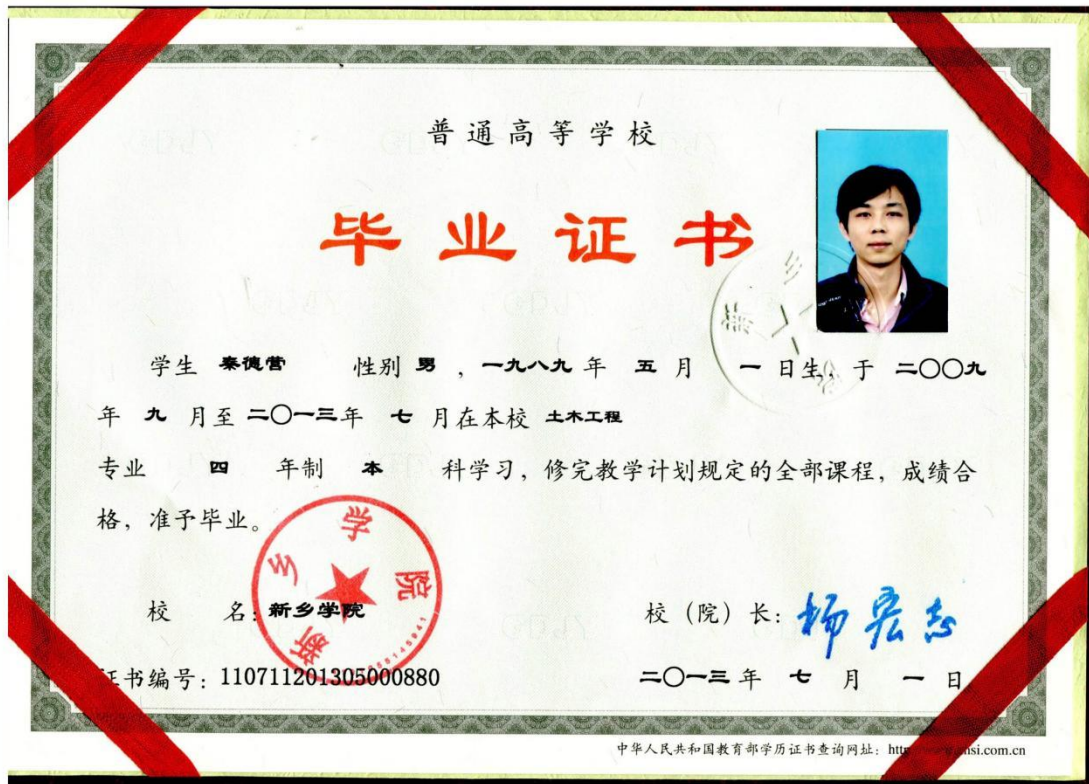 普通高等学校
毕业证书
学生 秦德营 性别 男 ，一九八九 年 五 月 一 日生，于 二〇〇九
年 九 月至 二〇一三 年 七 月在本校 土木工程
专业 四 年制 本 科学习，修完教学计划规定的全部课程，成绩合
格，准予毕业。
新乡学院
校 名：新乡学院 校（院）长：杨宏志
证书编号：110711201305000880 二〇一三 年 七 月 一 日
中华人民共和国教育部学历证书查询网址：http
si.com.cn